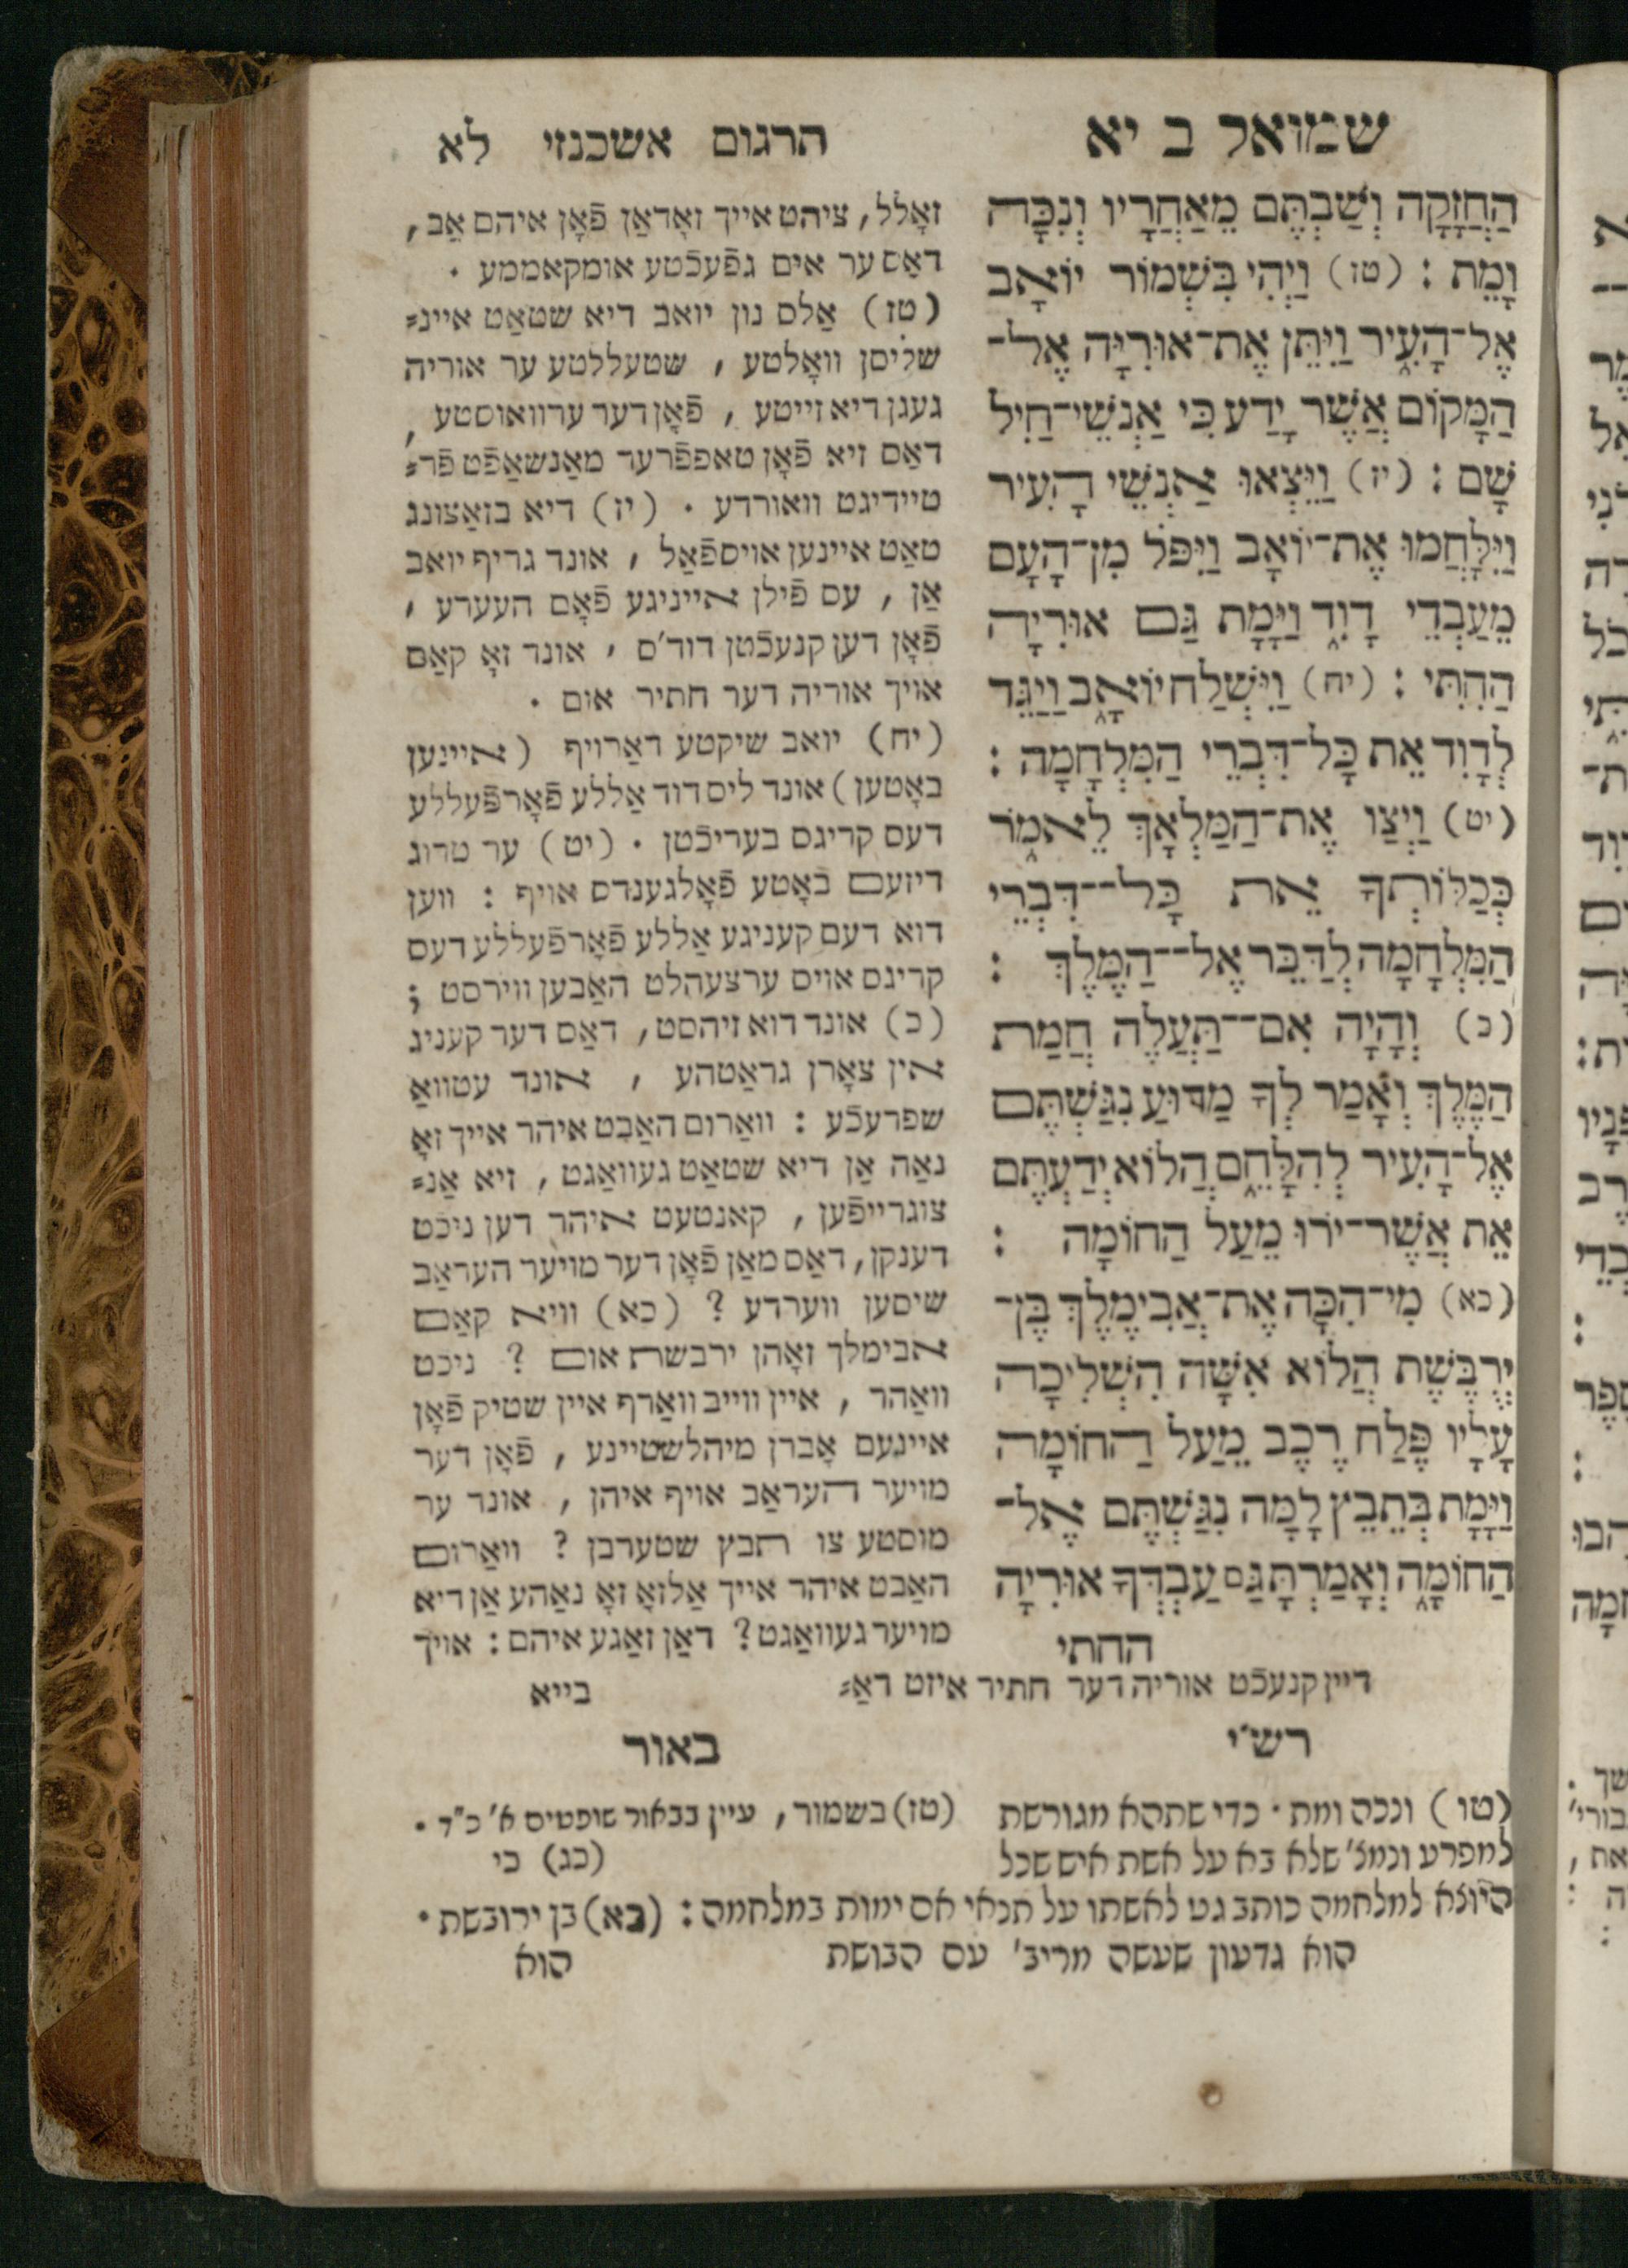 שמואל ב יא
הַחֲזָקָה וְשַׁבְתֶּם מֵאַחֲרָיו וְנִכָּה
וָמֵת : (טז) וַיְהִי בִּשְׁמוֹר יוֹאָב
אֶל־הָעִ֑יר וַיִּתֵּן אֶת־אוּרִיָּה אֶל־
הַמָּקוֹם אֲשֶׁר יָדַע כִּי אַנְשֵׁי־חַיִל
שָׁם : (יז) וַיֵּצְאוּ אַנְשֵׁי הָעִיר
וַיִּלָּחֲמוּ אֶת־יוֹאָב וַיִּפֹּל מִן־הָעָם
מֵעַבְדֵי דָוִ֑ד וַיָּמָת גַּם אוּרִיָּה
הַחִתִּי : (יח) וַיִּשְׁלַח יוֹאָ֑ב וַיַּגֵּד
לְדָוִד אֵת כָּל־דִּבְרֵי הַמִּלְחָמָה :
(יט) וַיְצַו אֶת־הַמַּלְאָךְ לֵאמֹ֑ר
כְּכַלּוֹתְךָ אֵת כָּל־־דִּבְרֵי
הַמִּלְחָמָה לְדַבֵּר אֶל־־הַמֶּלֶךְ :
(כ) וְהָיָה אִם־־תַּעֲלֶה חֲמַת
הַמֶּלֶךְ וְאָמַר לְךָ מַדּוּעַ נִגַּשְׁתֶּם
אֶל־הָעִיר לְהִלָּחֵ֑ם הֲלוֹא יְדַעְתֶּם
אֵת אֲשֶׁר־יֹרוּ מֵעַל הַחוֹמָה :
(כא) מִי־הִכָּה אֶת־אֲבִימֶלֶךְ בֶּן־
יְרֻבֶּשֶׁת הֲלוֹא אִשָּׁה הִשְׁלִיכָה
עָלָיו פֶּלַח רֶכֶב מֵעַל הַחוֹמָה
וַיָּמָת בְּתֵבֵץ לָמָּה נִגַּשְׁתֶּם אֶל־
הַחוֹמָ֑ה וְאָמַרְתָּ גַּם עַבְדְּךָ אוּרִיָּה
החתי
תרגום אשכנזי לא
זאָלל, ציהט אייך זאָדאַן פֿאָן איהם אַב,
דאַס ער אים גפֿעכֿטע אומקאממע .
(טז) אַלס נון יואב דיא שטאַט איינ=
שליסן וואָלטע , שטעללטע ער אוריה
געגן דיא זייטע , פֿאָן דער ערוואוסטע ,
דאַס זיא פֿאָן טאפפֿרער מאַנשאַפֿט פֿר=
טיידיגט וואורדע . (יז) דיא בזאַצונג
טאַט איינען אויספֿאַל , אונד גריף יואב
אַן , עס פֿילן אייניגע פֿאָם העערע ,
פֿאָן דען קנעכֿטן דוד'ס , אונד זאָ קאַם
אויך אוריה דער חתיר אום .
(יח) יואב שיקטע דאַרויף (איינען
באָטען) אונד ליס דוד אַללע פֿאָרפֿעללע
דעס קריגס בעריכֿטן . (יט) ער טרוג
דיזעם באָטע פֿאָלגענדס אויף : ווען
דוא דעם קעניגע אַללע פֿאָרפֿעללע דעס
קריגס אויס ערצעהלט האַבען ווירסט ;
(כ) אונד דוא זיהסט, דאַס דער קעניג
אין צאָרן גראַטהע , אונד עטוואַ
שפרעכֿע : וואַרום האַבט איהר אייך זאָ
נאַה אַן דיא שטאַט געוואַגט , זיא אַנ=
צוגרייפֿען , קאנטעט איהר דען ניכֿט
דענקן, דאַס מאַן פֿאָן דער מויער העראַב
שיסען ווערדע ? (כא) וויא קאַם
אבימלך זאָהן ירבשת אום ? ניכט
וואַהר , איין ווייב וואַרף איין שטיק פֿאָן
איינעם אָברן מיהלשטיינע , פֿאָן דער
מויער העראַב אויף איהן , אונד ער
מוסטע צו תבץ שטערבן ? וואַרום
האַבט איהר אייך אַלזאָ זאָ נאַהע אַן דיא
מויער געוואַגט? דאַן זאַגע איהם : אויך
דיין קנעכֿט אוריה דער חתיר איזט דאַ=
בייא
רש״י
(טו) ונכה ומת . כדי שתהא מגורשת
למפרע ונמצ' שלא בא על אשת איש שכל
היוצא למלחמה כותב גט לאשתו על תנאי אם ימות במלחמה : (כא) בן ירובשת .
הוא גדעון שעשה מריב' עם הבושת
באור
(טז) בשמור, עיין בבאור שופטים א' כ"ד .
(כג) כי
הוא